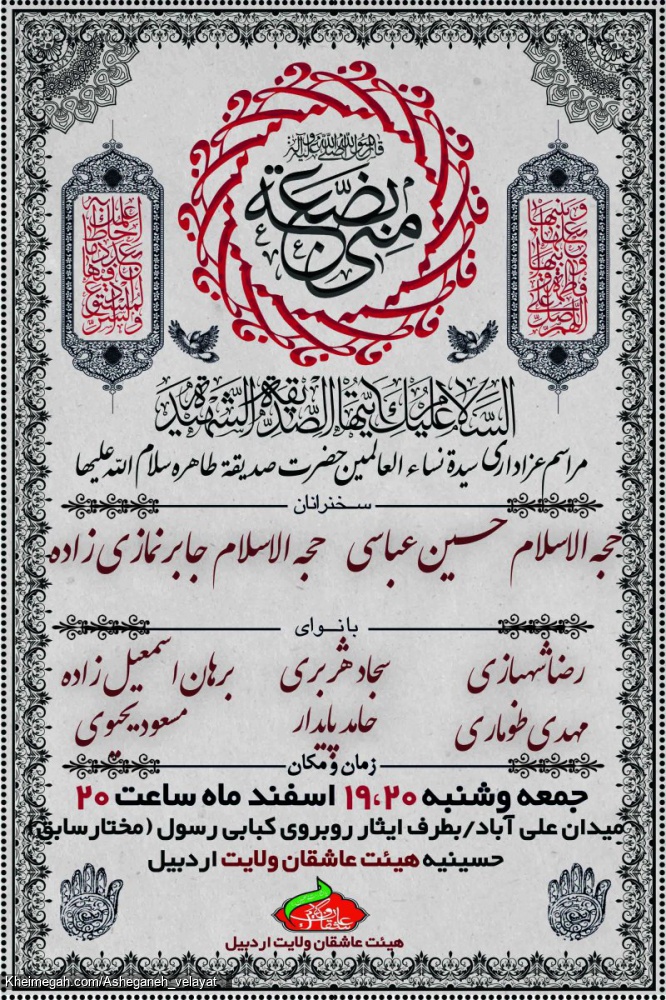 قال رسول الله صلی الله علیه و آله
بضعة منی
فاطمة
اللهم صل علی
فاطمة و
ابیها
و بعلها و
بنیها
والسر المستودع
فیها بعدد ما
احاط به
علمک
السلام علیک ایتها الصدیقة الشهیدة
مراسم عزاداری سیدة نساء العالمین حضرت صدیقة طاهره سلام الله علیها
سخنرانان
حجه الاسلام حسین عباسی حجه الاسلام جابر نمازی زاده
بانوای
رضا شهبازی سجاد هربری برهان اسمعیل زاده
مهدی طوماری حامد پایدار مسعود یحیوی
زمان و مکان
جمعه وشنبه ۱۹،۲۰ اسفند ماه ساعت ۲۰
میدان علی آباد/بطرف ایثار روبروی کبابی رسول (مختارسابق)
حسینیه هیئت عاشقان ولایت اردبیل
هیئت عاشقان ولایت اردبیل
Kheimegah.com/Asheganeh_velayat